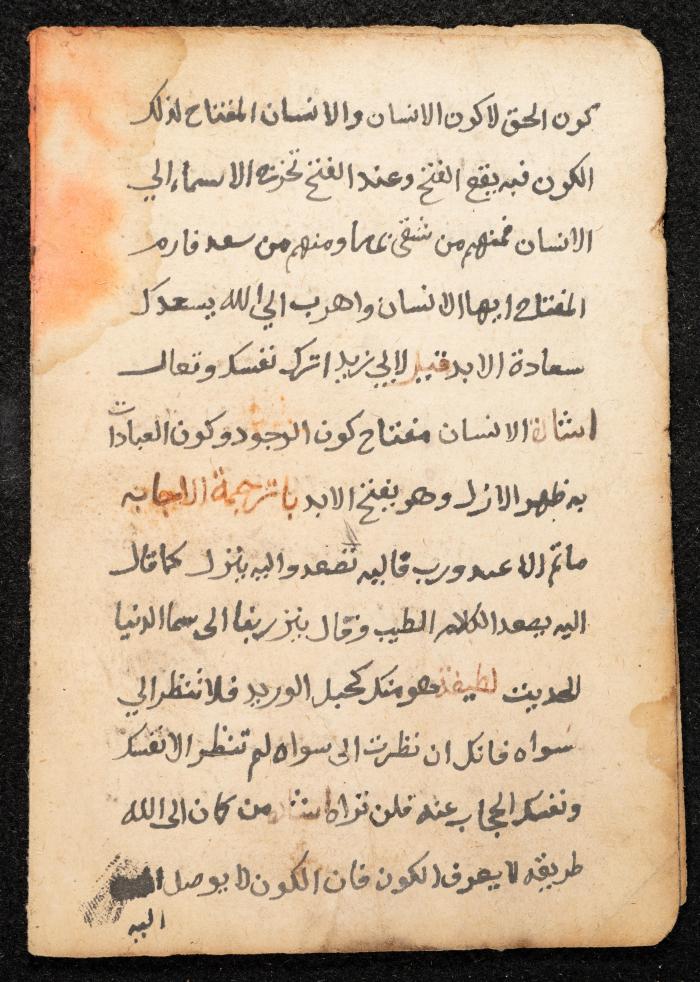 كون الحق لا كون الانسان والانسان المفتاح لذلك
الكون فبه يقع الفتح وعند الفتح تحزت الاسماء الى
الانسان فمنهم من شقى بها ومنهم من سعد فارم
المفتاح ايها الانسان واهرب الى الله يسعدك
سعادة الابد قيل لابي يزيد اترك نفسك وتعال
اشارة الانسان مفتاح كون الوجود وكون العبادات
به ظهر الازل وهو يفتح الابد باب ترجمة الاجابه
ما ثم الا عبد ورب فاليه تصعد واليه ينزل كما قال
اليه يصعد الكلام الطيب وقال ينزل ربنا الى سما الدنيا
الحديث لطيفة هو منك كحبل الوريد فلا تنظر الى
سواه فانك ان نظرت الى سواه لم تنظر الا نفسك
ونفسك الحجاب عنه فلن تراه اشارة من كان الى الله
طريقه لا يعرف الكون فان الكون لا يوصل
اليه